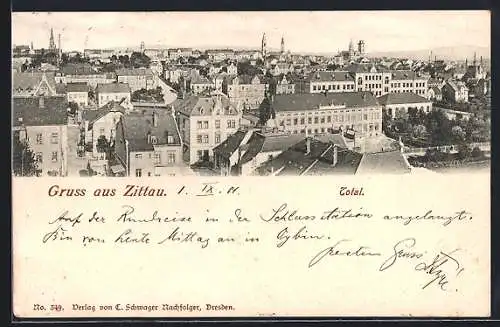 Gruss aus Zittau. 1. IX. 01
Total.
Auf der Rundreise in der Schlussstation angelangt.
Bin von heute Mittag an in Oybin.
Besten Gruss
No. 349. Verlag von C. Schwager Nachfolger, Dresden.